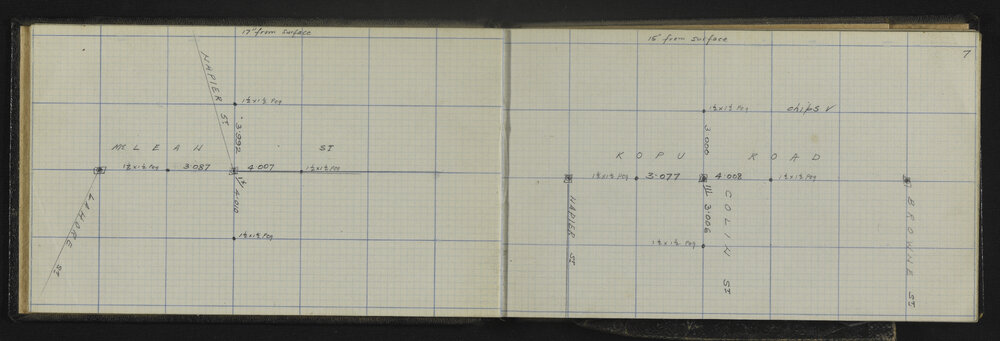 17" from surface
NAPIER ST
1½x1½ Peg
3.992
McLEAN ST
1½x1½ Peg
3.087
4.007
1½x1½ Peg
4.010
1½x1½ Peg
LAHORE ST
15" from surface
7
1½x1½ Peg
chips V
3.000
KOPU ROAD
1½x1½ Peg
3.077
4.008
1½x1½ Peg
3.006
1½x1½ Peg
NAPIER ST
COLIN ST
BROWNE ST